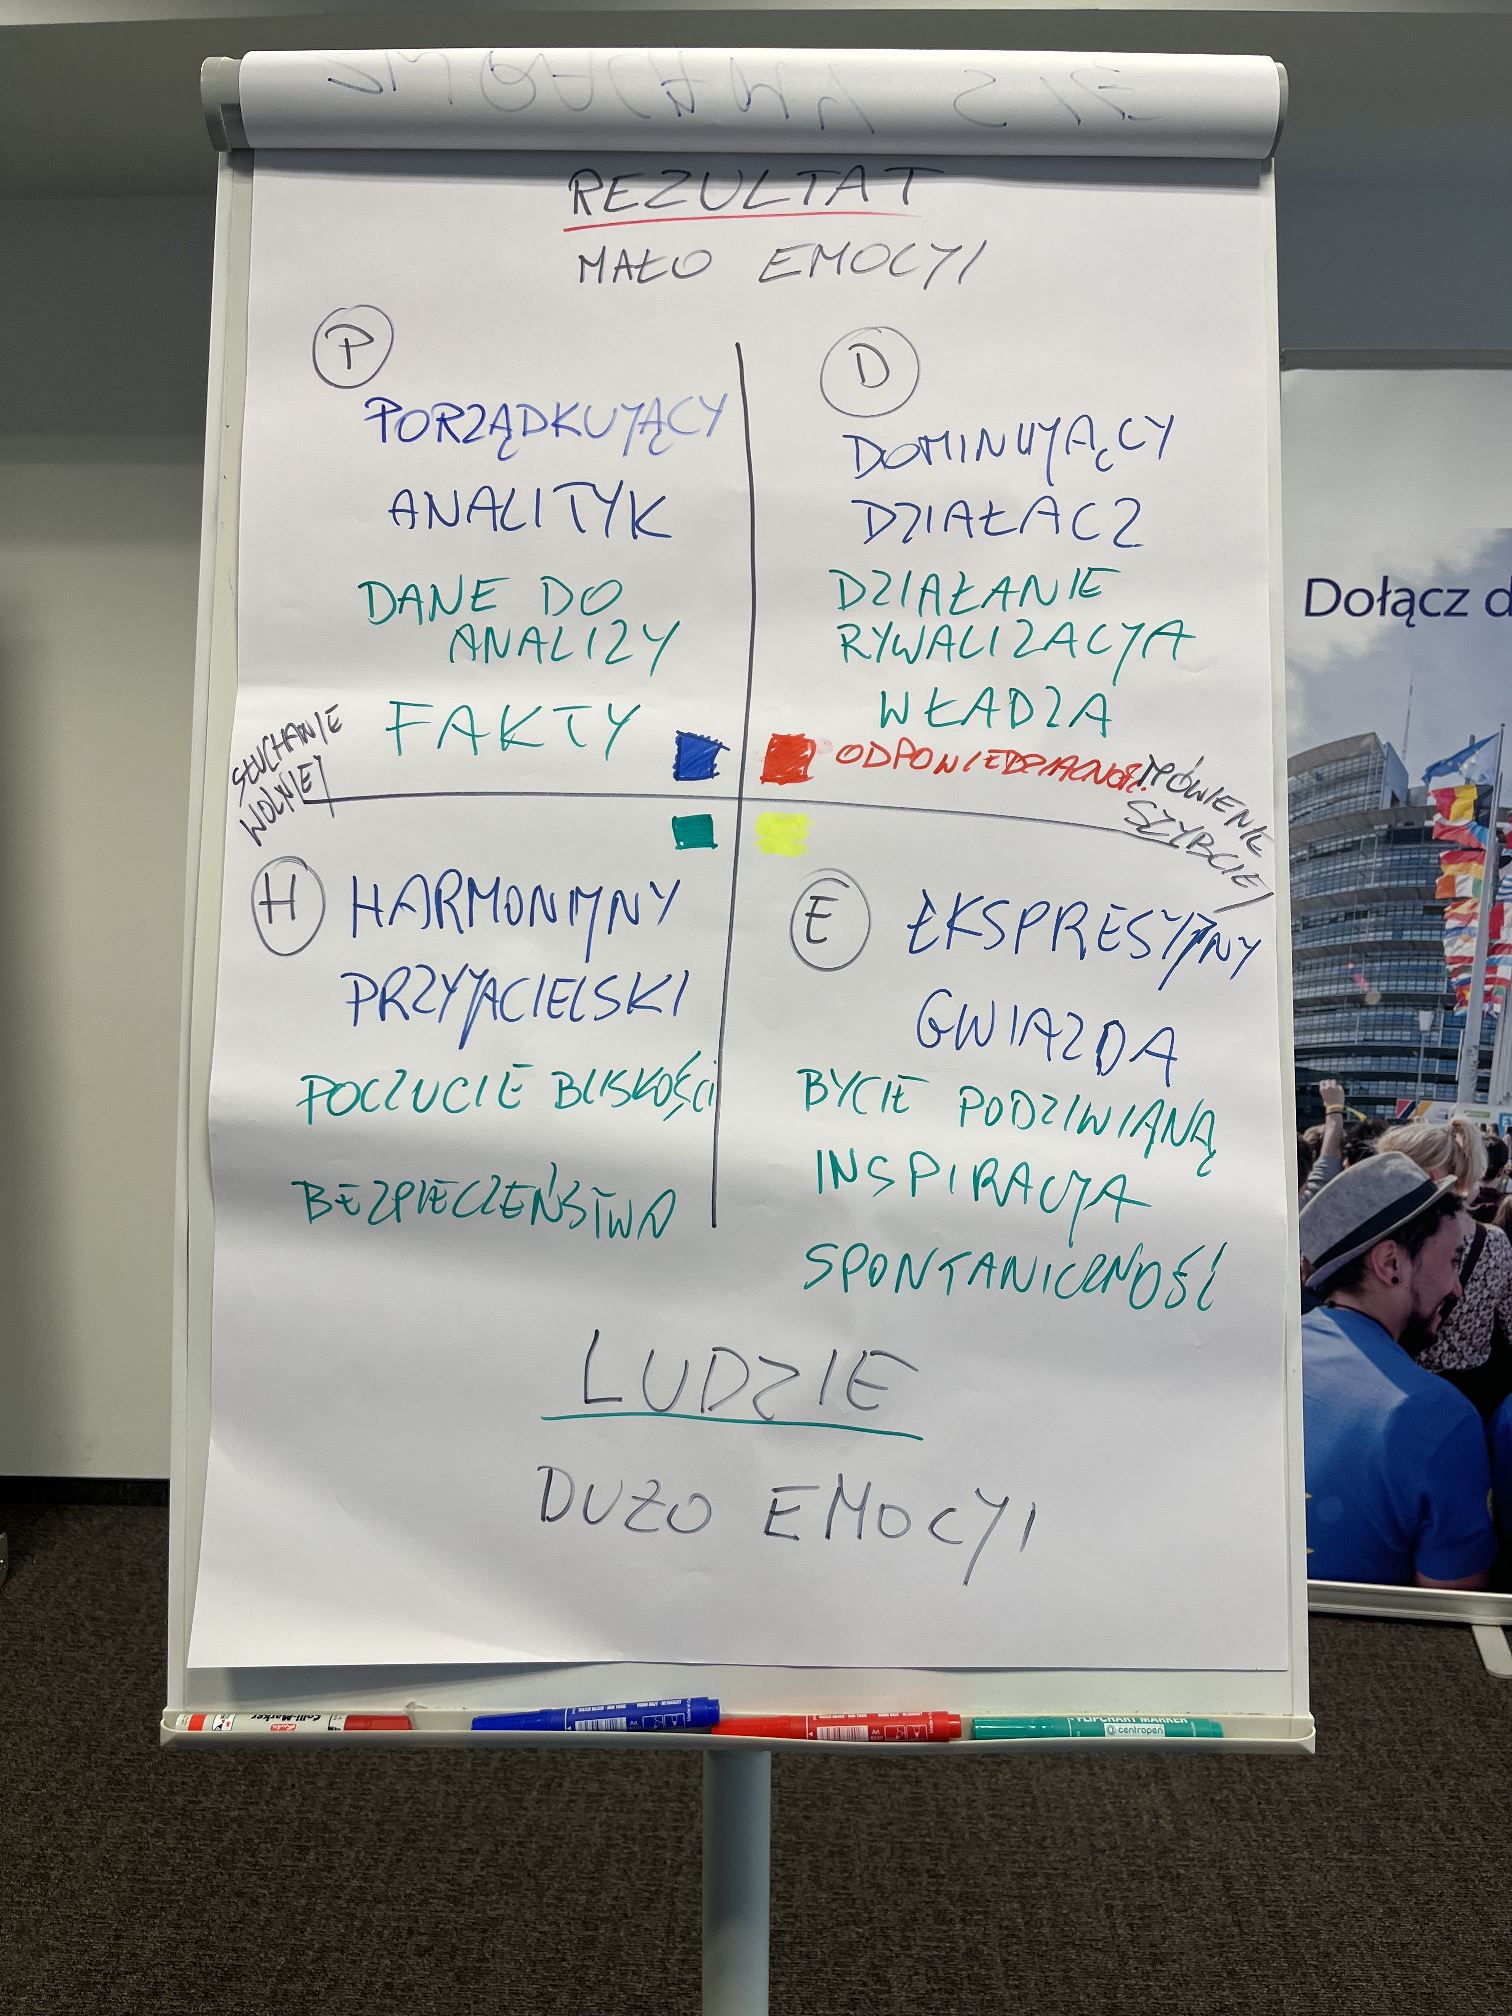 REZULTAT
MAŁO EMOCJI
P
PORZĄDKUJĄCY
ANALITYK
DANE DO
ANALIZY
FAKTY
D
DOMINUJĄCY
DZIAŁACZ
DZIAŁANIE
RYWALIZACJA
WŁADZA
ODPOWIEDZIALNOŚĆ
SŁUCHANIE
WOLNIEJ
MÓWIENIE
SZYBCIEJ
H HARMONIJNY
PRZYJACIELSKI
POCZUCIE BLISKOŚCI
BEZPIECZEŃSTWA
E EKSPRESYJNY
GWIAZDA
BYCIE PODZIWIANĄ
INSPIRACJA
SPONTANICZNOŚĆ
LUDZIE
DUŻO EMOCJI
Dołącz d
FLIPCHART MARKER
centropen